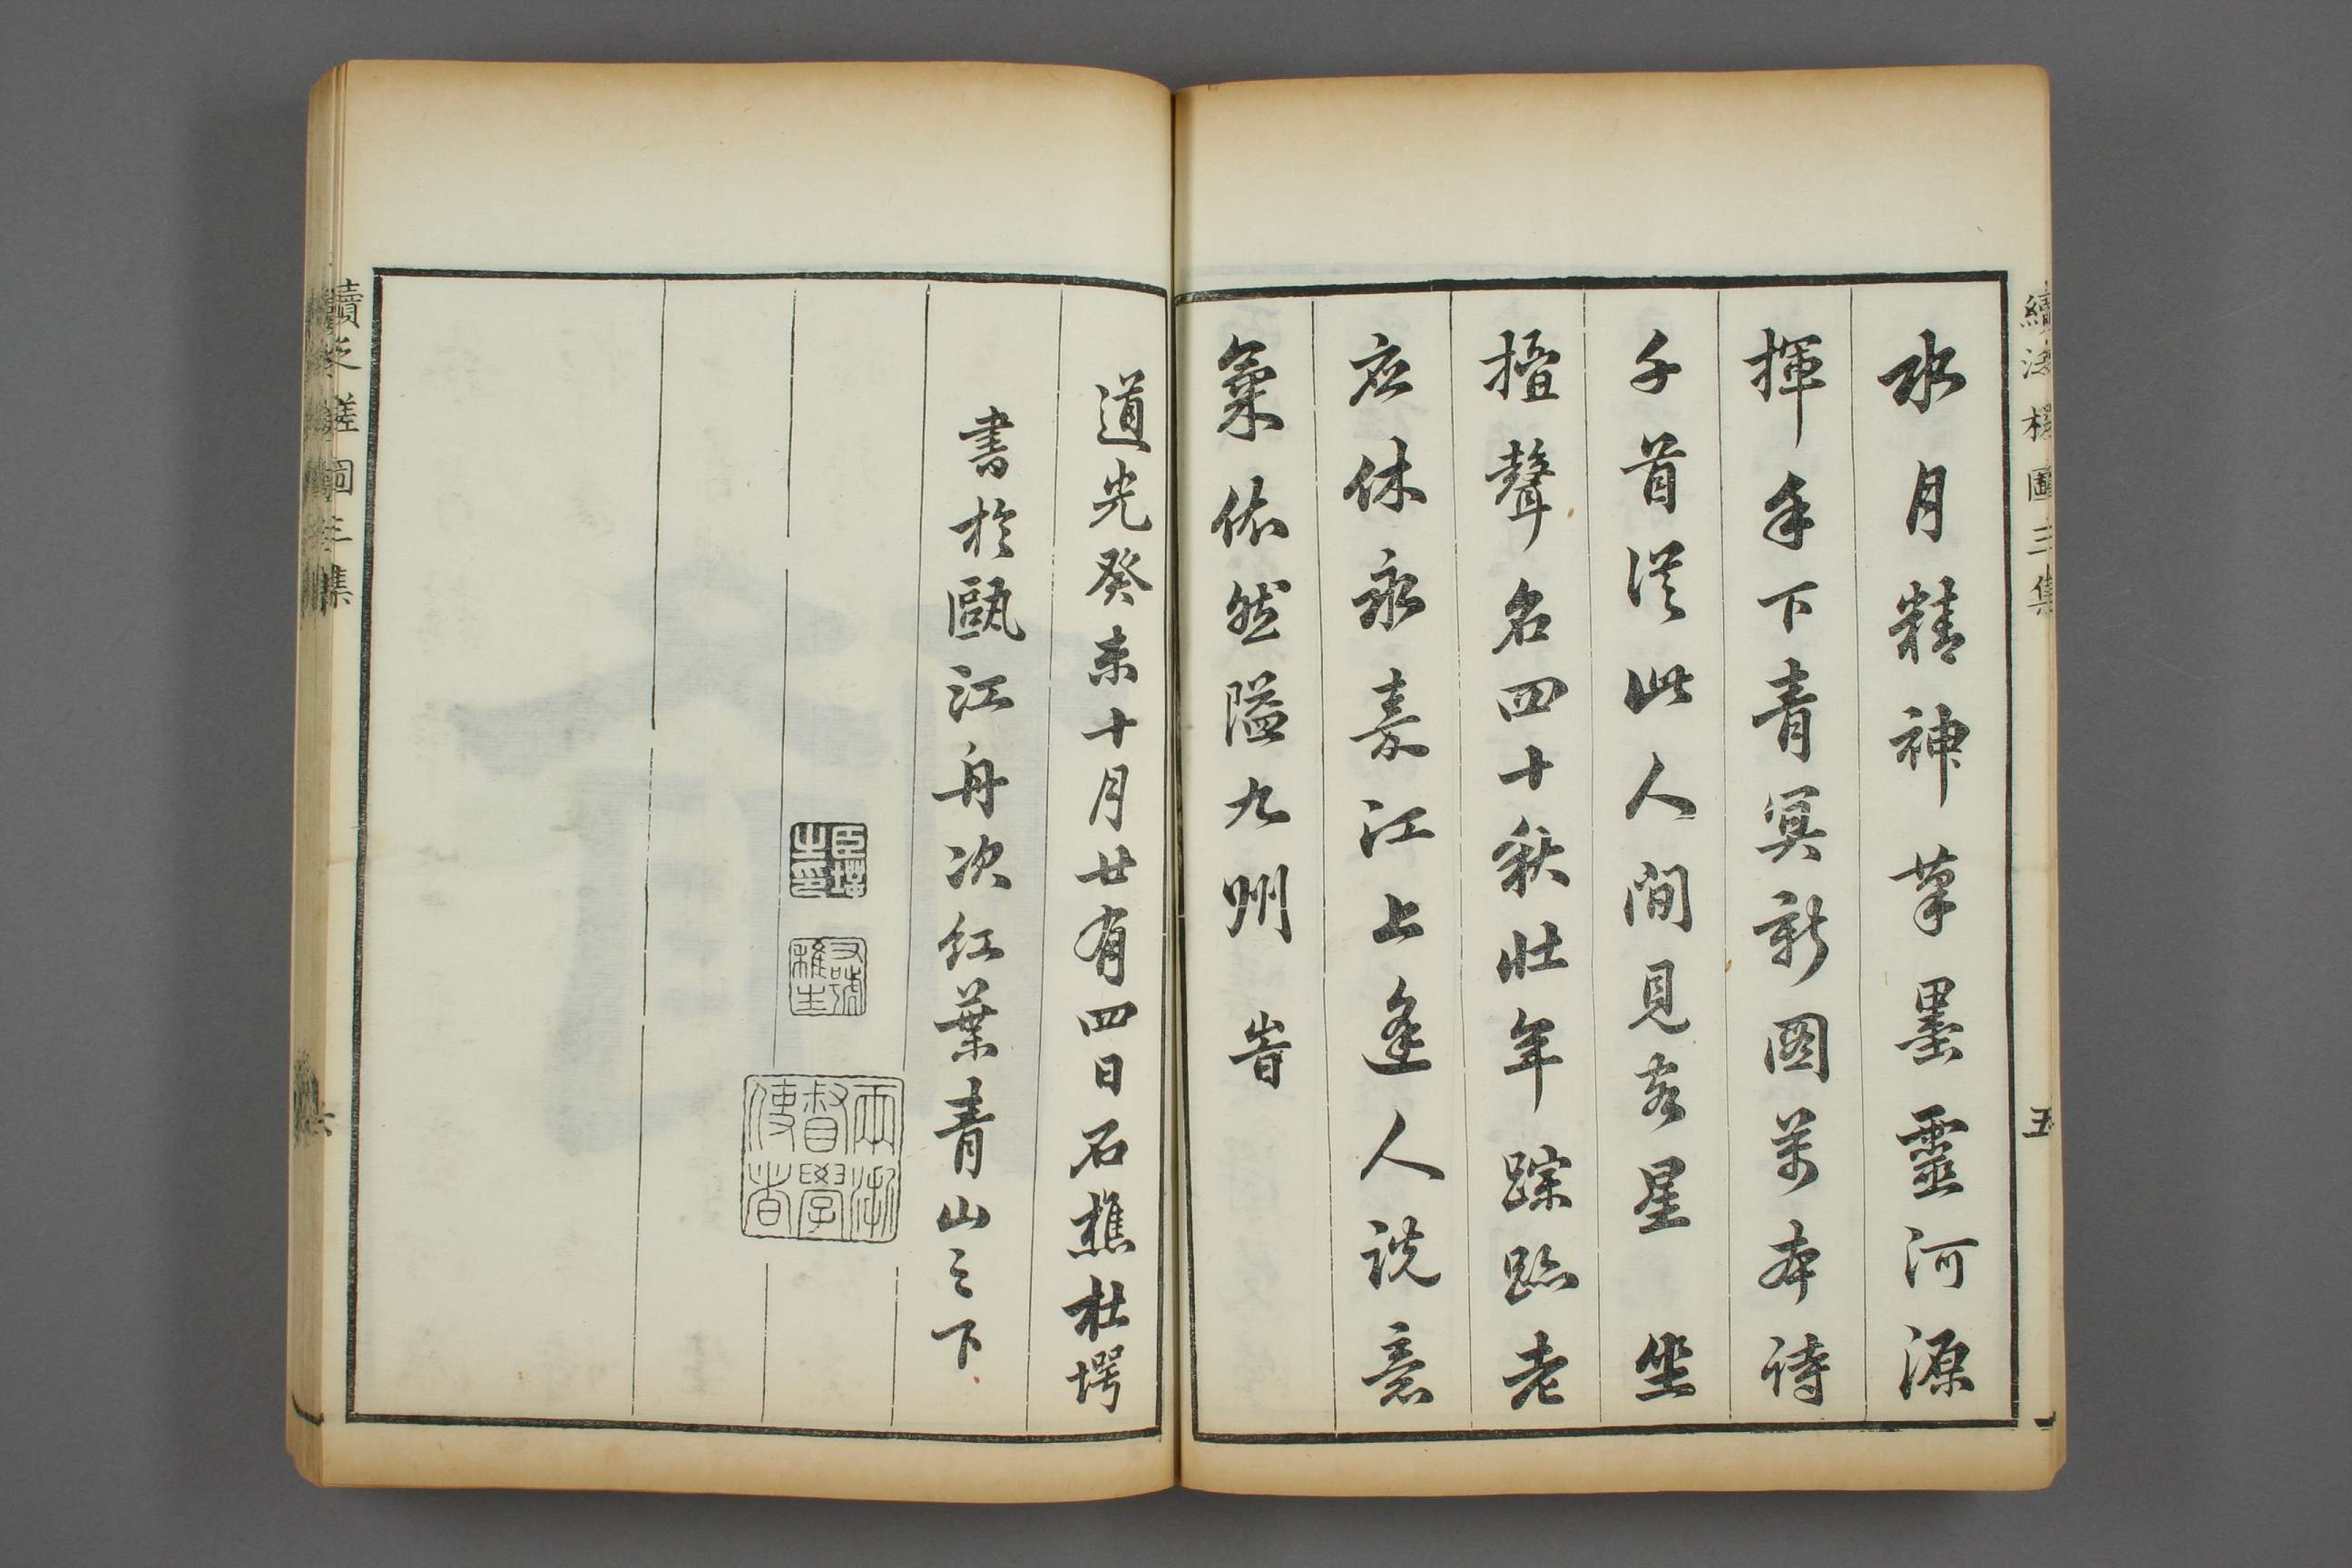 續泛槎圖三集
五
水月精神筆墨靈河源
揮手下青冥新圖萬本詩
千首從此人間見客星 坐
擅聲名四十秋壯年蹤跡老
應休永嘉江上逢人說意
氣依然隘九州 峕
道光癸未十月廿有四日石樵杜堮
書於甌江舟次紅葉青山之下
臣堮之印
又號樵生
兩浙督學使者
續泛槎圖三集
六